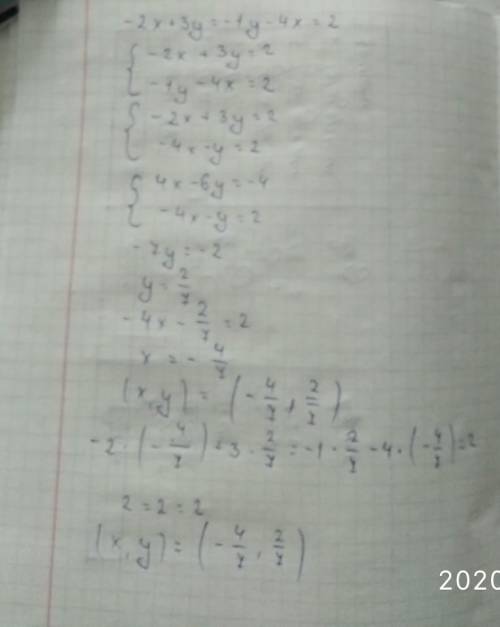 -2x+3y=-1y-4x=2
{ -2x+3y=2
-1y-4x=2
{ -2x+3y=2
-4x-y=2
{ 4x-6y=-4
-4x-y=2
-7y=-2
y=2/7
-4x-2/7=2
x=-4/7
(x,y)=(-4/7,2/7)
-2·(-4/7)+3·2/7=-1·2/7-4·(-4/7)=2
2=2=2
(x,y)=(-4/7,2/7)
2020